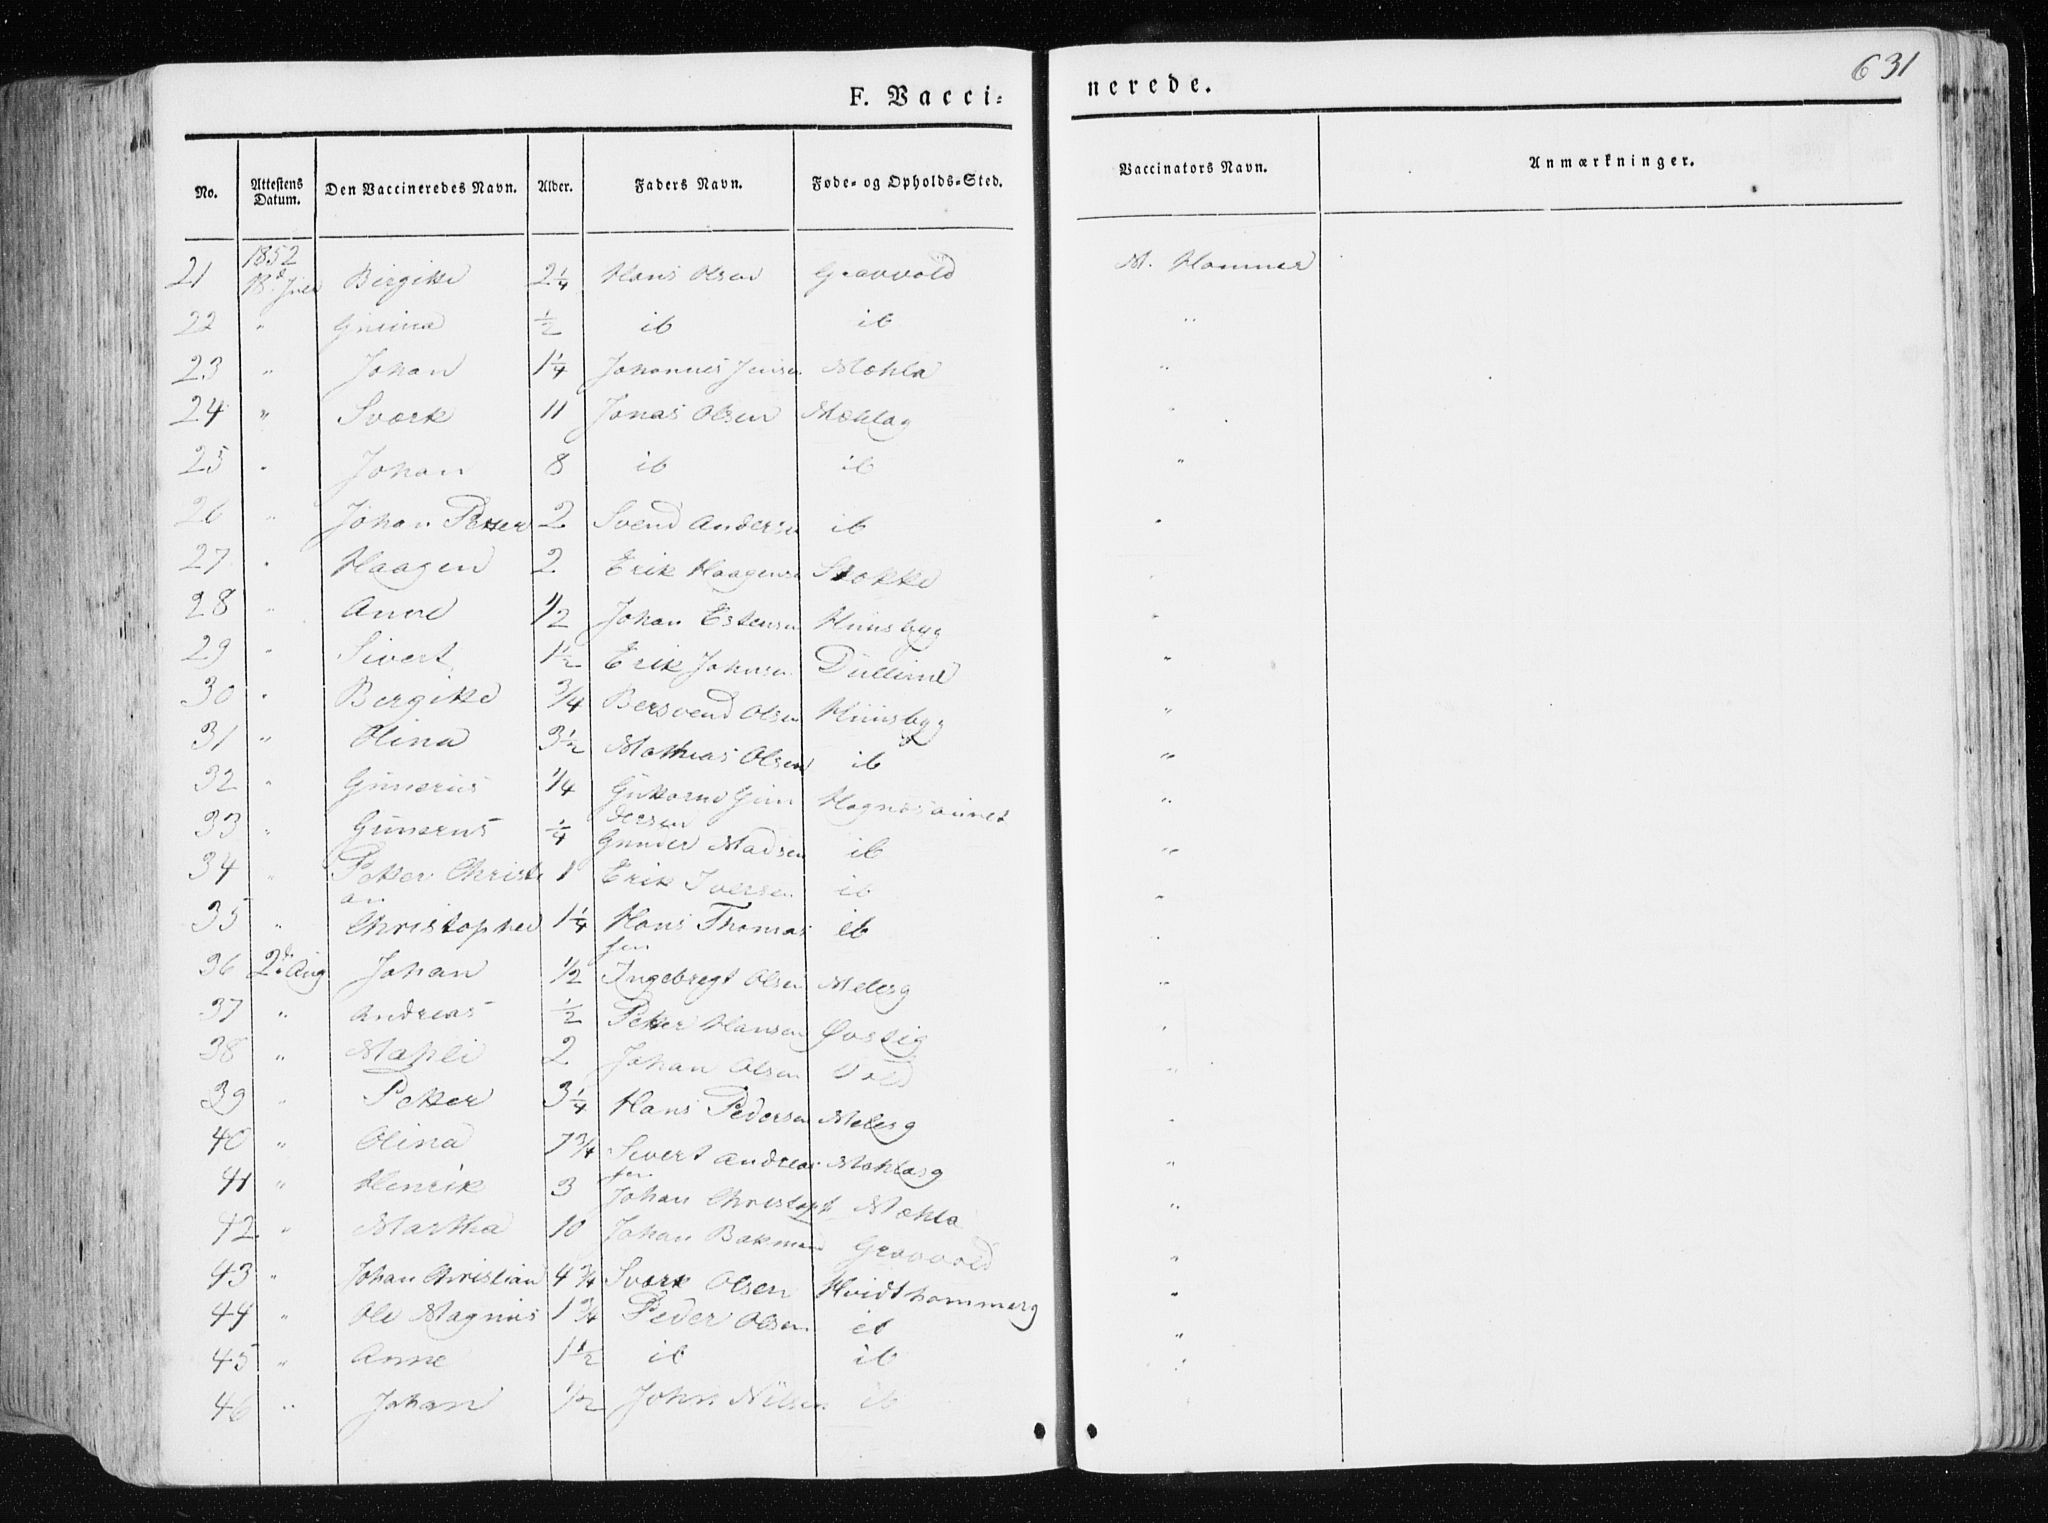 631
F. Vacci- nerede.
No. Attestens Datum. Den Vaccineredes Navn. Alder. Faders Navn. Føde- og Opholds-Sted. Vaccinators Navn. Anmærkninger.
1852
21 18d Juli Birgitte 2 1/4 Hans Olsen Gravvold M. Hammer
22 " 1/2 ib ib "
23 " Johan 1 1/4 Johannes Jensen Mæhla "
24 " Sværk 11 Jonas Olsen Mæhlag "
25 " Johan 8 ib ib "
26 " Johan Petter 2 Svend Andersen ib "
27 " Haagen 2 Erik Haagensen Stokke "
28 " Anne 1/2 Johan Estensen Huusbyg "
29 " Sivert 1 1/2 Erik Johnsen Dullume "
30 " Bergitte 3/4 Bersvend Olsen Huusbyg "
31 " Olina 3 1/2 Mathias Olsen ib "
32 " Gunerius 1/4 Guttorm Gun Hognæsaunet "
dersen
33 " Gunerus 1/4 Gunder Madsen ib "
34 " Petter Christi 1 Erik Iversen ib "
an
35 " Christopher 1 1/4 Hans Thomas ib "
sen
36 2d Aug Johan 1/2 Ingebregt Olsen Melesg "
37 " Andreas 1/2 Petter Hansen Øvstig "
38 " Mahli 2 Johan Olsen Vold "
39 " Petter 3 1/4 Hans Pedersen Melesg "
40 " Olina 7 3/4 Sivert Andreas Mæhlasg "
sen
41 " Henrik 3 Johan Christoph Mæhla "
42 " Martha 10 Johan Bakman Gravvold "
43 " Johan Christian 4 3/4 Sværk Olsen Hvidthammerg "
44 " Ole Magnus 1 3/4 Peder Olsen ib "
45 " Anne 1 1/2 ib ib "
46 " Johan 1/2 John Nilsen ib